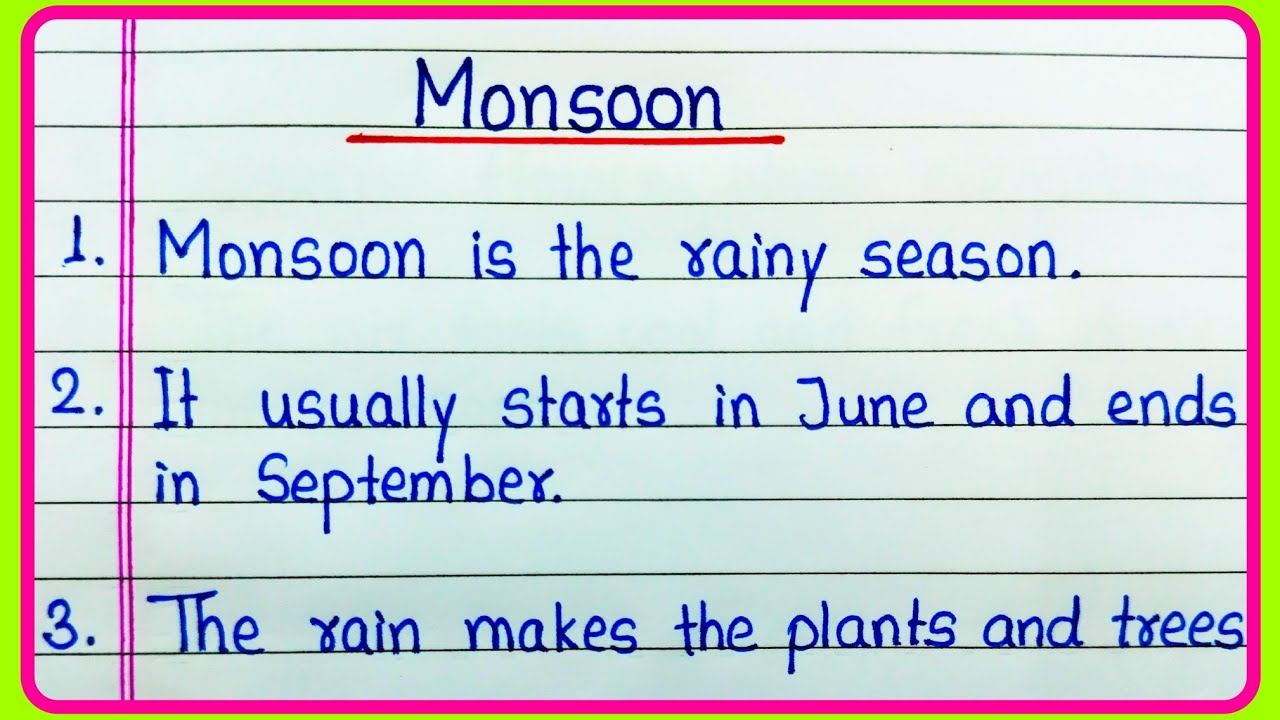 Monsoon
1. Monsoon is the rainy season.
2. It usually starts in June and ends
in September.
3. The rain makes the plants and trees